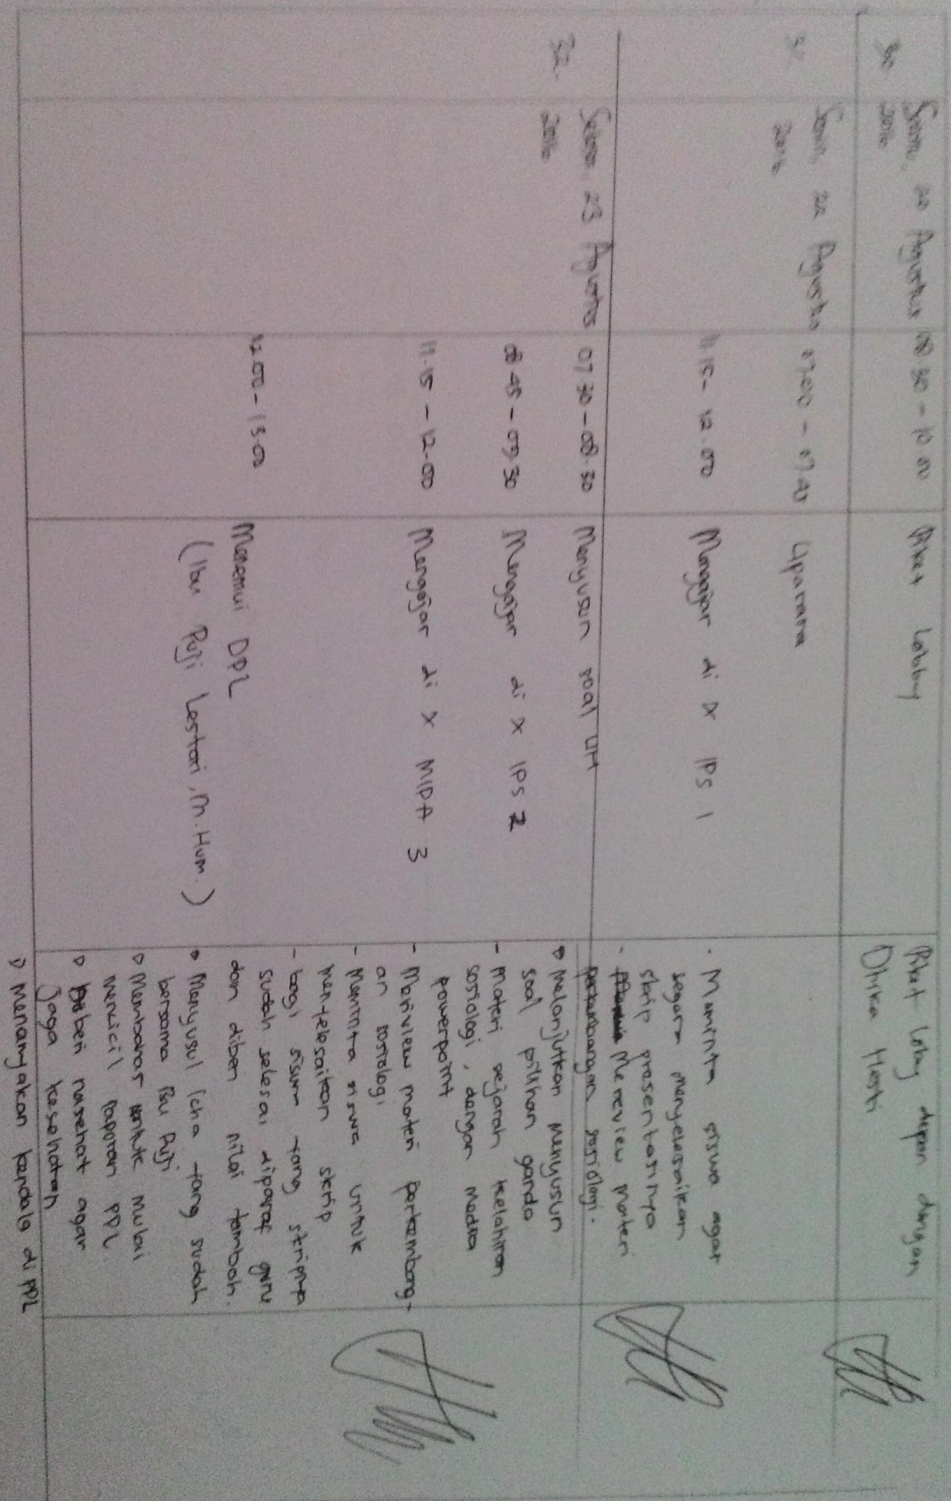 30. Sabtu, 20 Agustus 08.30 - 10.00 Piket Lobby Piket Loby depan dengan
2016 Dhika Hesti
31. Senin, 22 Agustus 07.00 - 07.45 Upacara
2016
11.15 - 12.00 Mengajar di X IPS 1 - Meminta siswa agar
segera menyelesaikan
skrip presentasinya
- Mereview materi
perkembangan sosiologi.
32. Selasa, 23 Agustus 07.30 - 08.30 Menyusun soal UH Melanjutkan menyusun
2016 soal pilihan ganda
08.45 - 09.30 Mengajar di X IPS 2 - Materi sejarah kelahiran
sosiologi, dengan media
powerpoint
11.15 - 12.00 Mengajar di X MIPA 3 - Meriview materi perkembang-
an sosiologi
- Meminta siswa untuk
men-telesaikan skrip
- bagi siswa yang skripnya
sudah selesai diparaf guru
dan diberi nilai tambah.
12.00 - 13.00 Menemui DPL Menyusul Icha yang sudah
(Ibu Puji Lestari, M.Hum.) bersama Bu Puji
Membahas untuk mulai
mencicil laporan PPL.
beri nasehat agar
jaga kesehatan
Menanyakan kendala di PPL